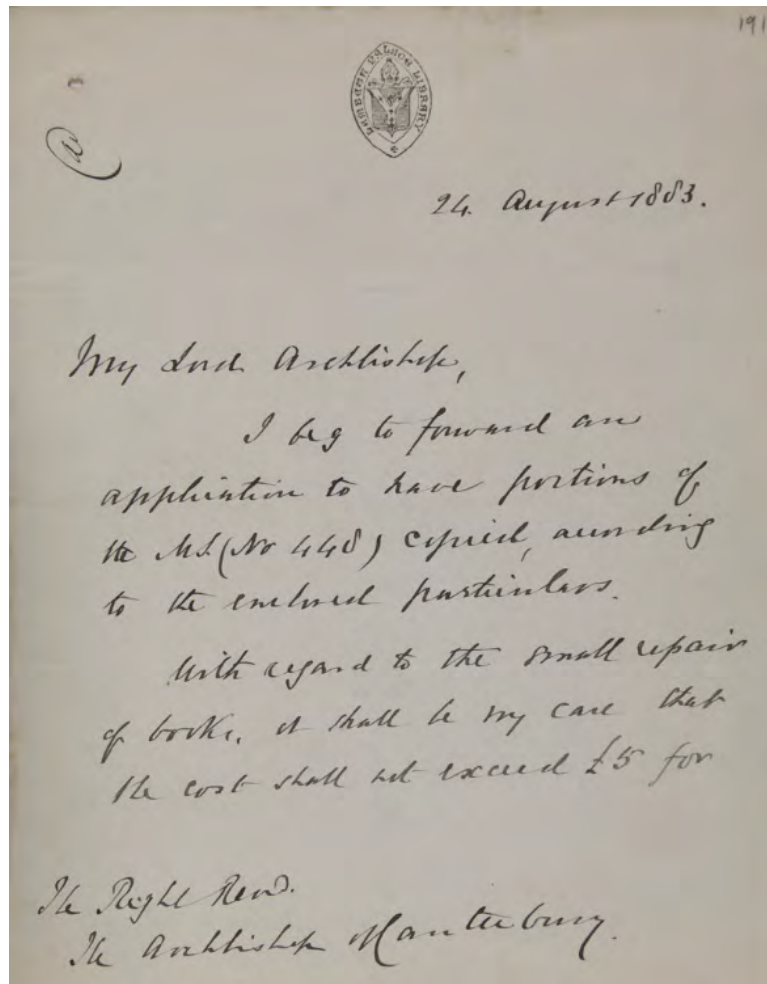 191
LAMBETH PALACE LIBRARY
24 August 1883.
My Lord Archbishop,
I beg to forward an
application to have portions of
the MS. (No 448) copied, according
to the enclosed particulars.
With regard to the small repair
of books, it shall be my care that
the cost shall not exceed £5 for
The Right Revd.
The Archbishop of Canterbury.